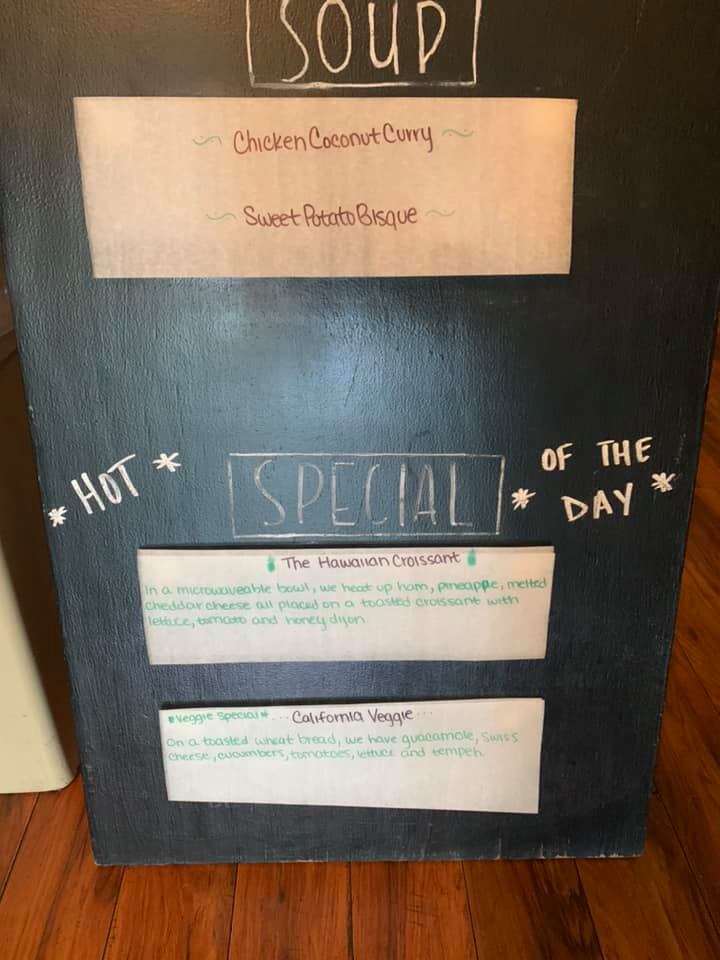 SOUP
Chicken Coconut Curry
Sweet Potato Bisque
* HOT * SPECIAL * OF THE DAY *
The Hawaiian Croissant
In a microwaveable bowl, we heat up ham, pineappe, melted
cheddar cheese all placed on a toasted croissant with
lettuce, tomato and honey dijon
*veggie special* ... California Veggie ...
On a toasted wheat bread, we have guacamole, Swiss
cheese, cucumbers, tomatoes, lettuce and tempeh